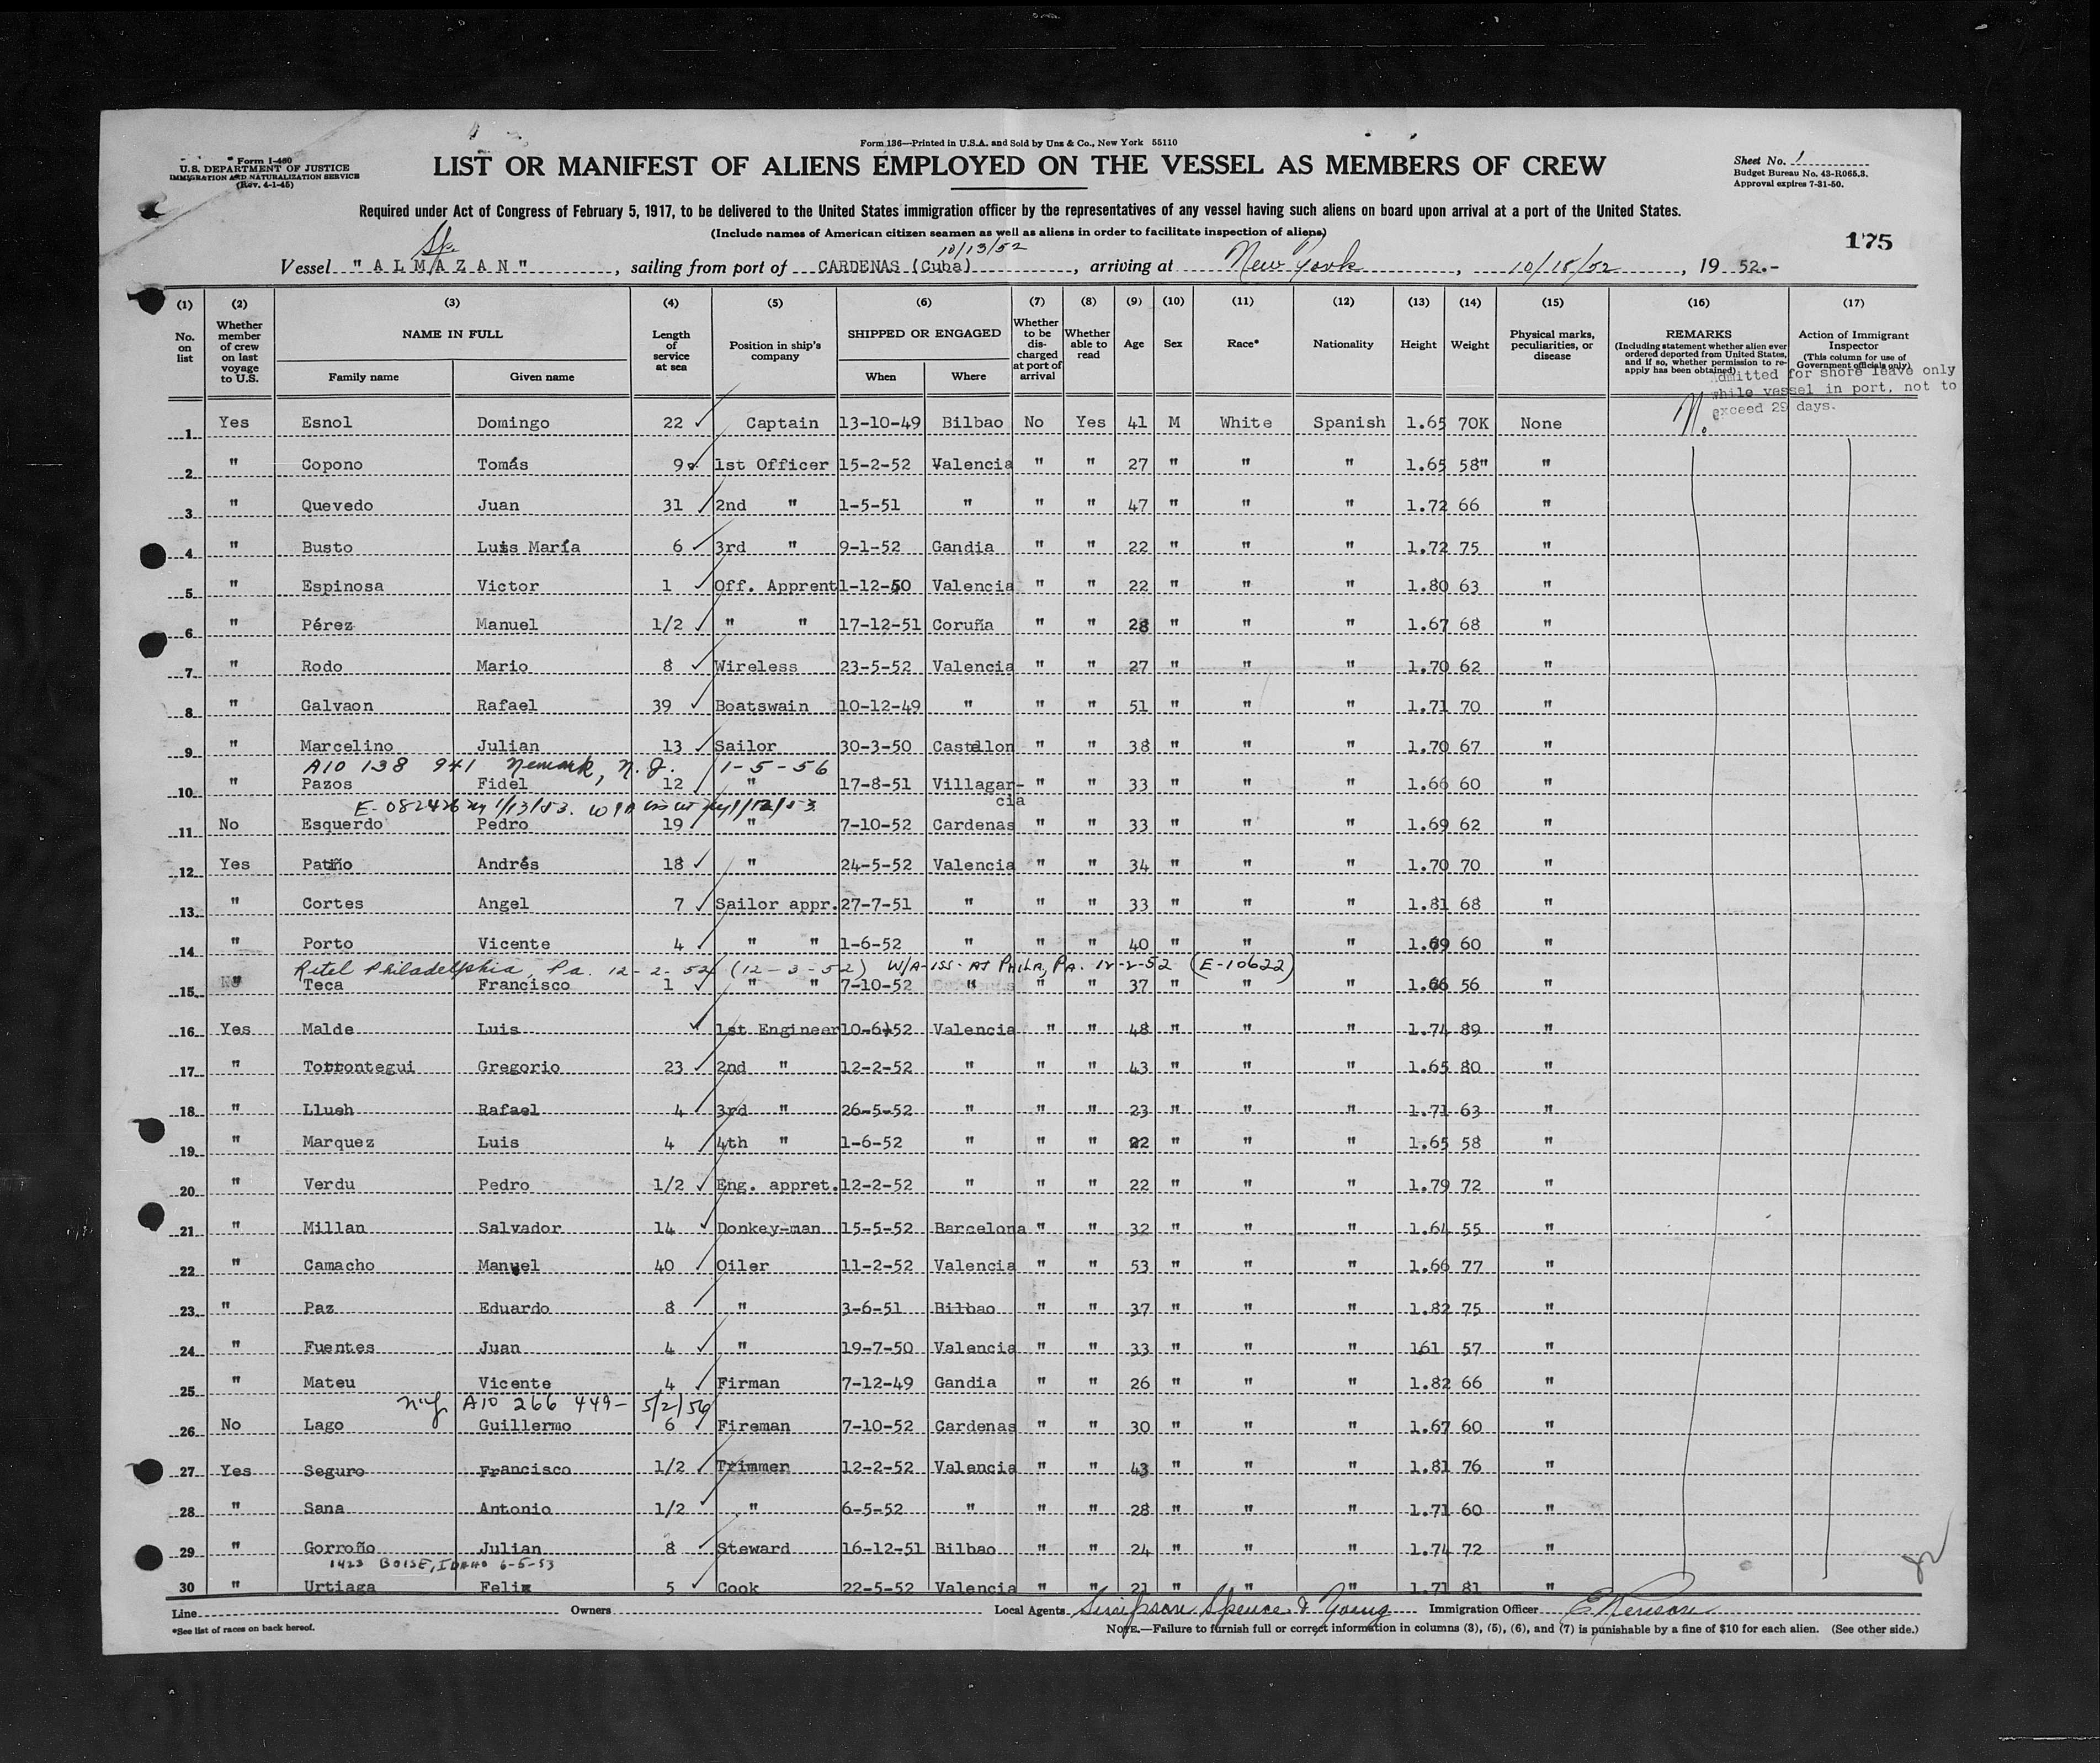 Form 136—Printed in U.S.A. and Sold by Unz & Co., New York 55110
Form I-480
U.S. DEPARTMENT OF JUSTICE
IMMIGRATION AND NATURALIZATION SERVICE
(Rev. 4-1-45)
LIST OR MANIFEST OF ALIENS EMPLOYED ON THE VESSEL AS MEMBERS OF CREW
Sheet No. 1
Budget Bureau No. 43-R065.3.
Approval expires 7-31-50.
Required under Act of Congress of February 5, 1917, to be delivered to the United States immigration officer by the representatives of any vessel having such aliens on board upon arrival at a port of the United States.
(Include names of American citizen seamen as well as aliens in order to facilitate inspection of aliens)
175
10/13/52
Vessel " A L M A Z A N " , sailing from port of CARDENAS (Cuba) , arriving at New York , 10/18/52 , 19 52.-
(1) (2) (3) (4) (5) (6) (7) (8) (9) (10) (11) (12) (13) (14) (15) (16) (17)
No. on list
Whether member of crew on last voyage to U.S.
NAME IN FULL
Family name Given name
Length of service at sea
Position in ship's company
SHIPPED OR ENGAGED
When Where
Whether to be discharged at port of arrival
Whether able to read
Age Sex Race* Nationality Height Weight
Physical marks, peculiarities, or disease
REMARKS
(Including statement whether alien ever ordered deported from United States, and if so, whether permission to reapply has been obtained)
Action of Immigrant Inspector
(This column for use of Government officials only)
Admitted for shore leave only
while vessel in port, not to
exceed 29 days.
1 Yes Esnol Domingo 22 Captain 13-10-49 Bilbao No Yes 41 M White Spanish 1.65 70K None
2 " Copono Tomás 9 1st Officer 15-2-52 Valencia " " 27 " " " 1.65 58" "
3 " Quevedo Juan 31 2nd " 1-5-51 " " " 47 " " " 1.72 66 "
4 " Busto Luis María 6 3rd " 9-1-52 Gandia " " 22 " " " 1.72 75 "
5 " Espinosa Victor 1 Off. Apprent 1-12-50 Valencia " " 22 " " " 1.80 63 "
6 " Pérez Manuel 1/2 " " 17-12-51 Coruña " " 28 " " " 1.67 68 "
7 " Rodo Mario 8 Wireless 23-5-52 Valencia " " 27 " " " 1.70 62 "
8 " Galvaon Rafael 39 Boatswain 10-12-49 " " " 51 " " " 1.71 70 "
9 " Marcelino Julian 13 Sailor 30-3-50 Castellon " " 38 " " " 1.70 67 "
A10 138 941 Newark, N.J. 1-5-56
10 " Pazos Fidel 12 " 17-8-51 Villagarcia " " 33 " " " 1.66 60 "
E-082426 1/13/53.
11 No Esquerdo Pedro 19 " 7-10-52 Cardenas " " 33 " " " 1.69 62 "
12 Yes Patiño Andrés 18 " 24-5-52 Valencia " " 34 " " " 1.70 70 "
13 " Cortes Angel 7 Sailor appr. 27-7-51 " " " 33 " " " 1.81 68 "
14 " Porto Vicente 4 " " 1-6-52 " " " 40 " " " 1.69 60 "
Retel Philadelphia, Pa. 12-2-52 (12-3-52) W/A ISS. AT PHILA, PA. 12-2-52 (E-10622)
15 " Teca Francisco 1 " " 7-10-52 " " " 37 " " " 1.66 56 "
16 Yes Malde Luis 1st Engineer 10-6-52 Valencia " " 48 " " " 1.74 89 "
17 " Torrontegui Gregorio 23 2nd " 12-2-52 " " " 43 " " " 1.65 80 "
18 " Llueh Rafael 4 3rd " 26-5-52 " " " 23 " " " 1.71 63 "
19 " Marquez Luis 4 4th " 1-6-52 " " " 22 " " " 1.65 58 "
20 " Verdu Pedro 1/2 Eng. appret. 12-2-52 " " " 22 " " " 1.79 72 "
21 " Millan Salvador 14 Donkey-man 15-5-52 Barcelona " " 32 " " " 1.64 55 "
22 " Camacho Manuel 40 Oiler 11-2-52 Valencia " " 53 " " " 1.66 77 "
23 " Paz Eduardo 8 " 3-6-51 Bilbao " " 37 " " " 1.82 75 "
24 " Fuentes Juan 4 " 19-7-50 Valencia " " 33 " " " 161 57 "
25 " Mateu Vicente 4 Firman 7-12-49 Gandia " " 26 " " " 1.82 66 "
N.Y. A10 266 449- 5/2/56
26 No Lago Guillermo 6 Fireman 7-10-52 Cardenas " " 30 " " " 1.67 60 "
27 Yes Seguro Francisco 1/2 Trimmer 12-2-52 Valencia " " 43 " " " 1.81 76 "
28 " Sana Antonio 1/2 " 6-5-52 " " " 28 " " " 1.71 60 "
29 " Gorroño Julian 8 Steward 16-12-51 Bilbao " " 24 " " " 1.74 72 "
1423 BOISE, IDAHO 6-5-53
30 " Urtiaga Felix 5 Cook 22-5-52 Valencia " " 21 " " " 1.71 81 "
Line Owners Local Agents Simpson Spence & Young Immigration Officer
*See list of races on back hereof.
NOTE.—Failure to furnish full or correct information in columns (3), (5), (6), and (7) is punishable by a fine of $10 for each alien. (See other side.)